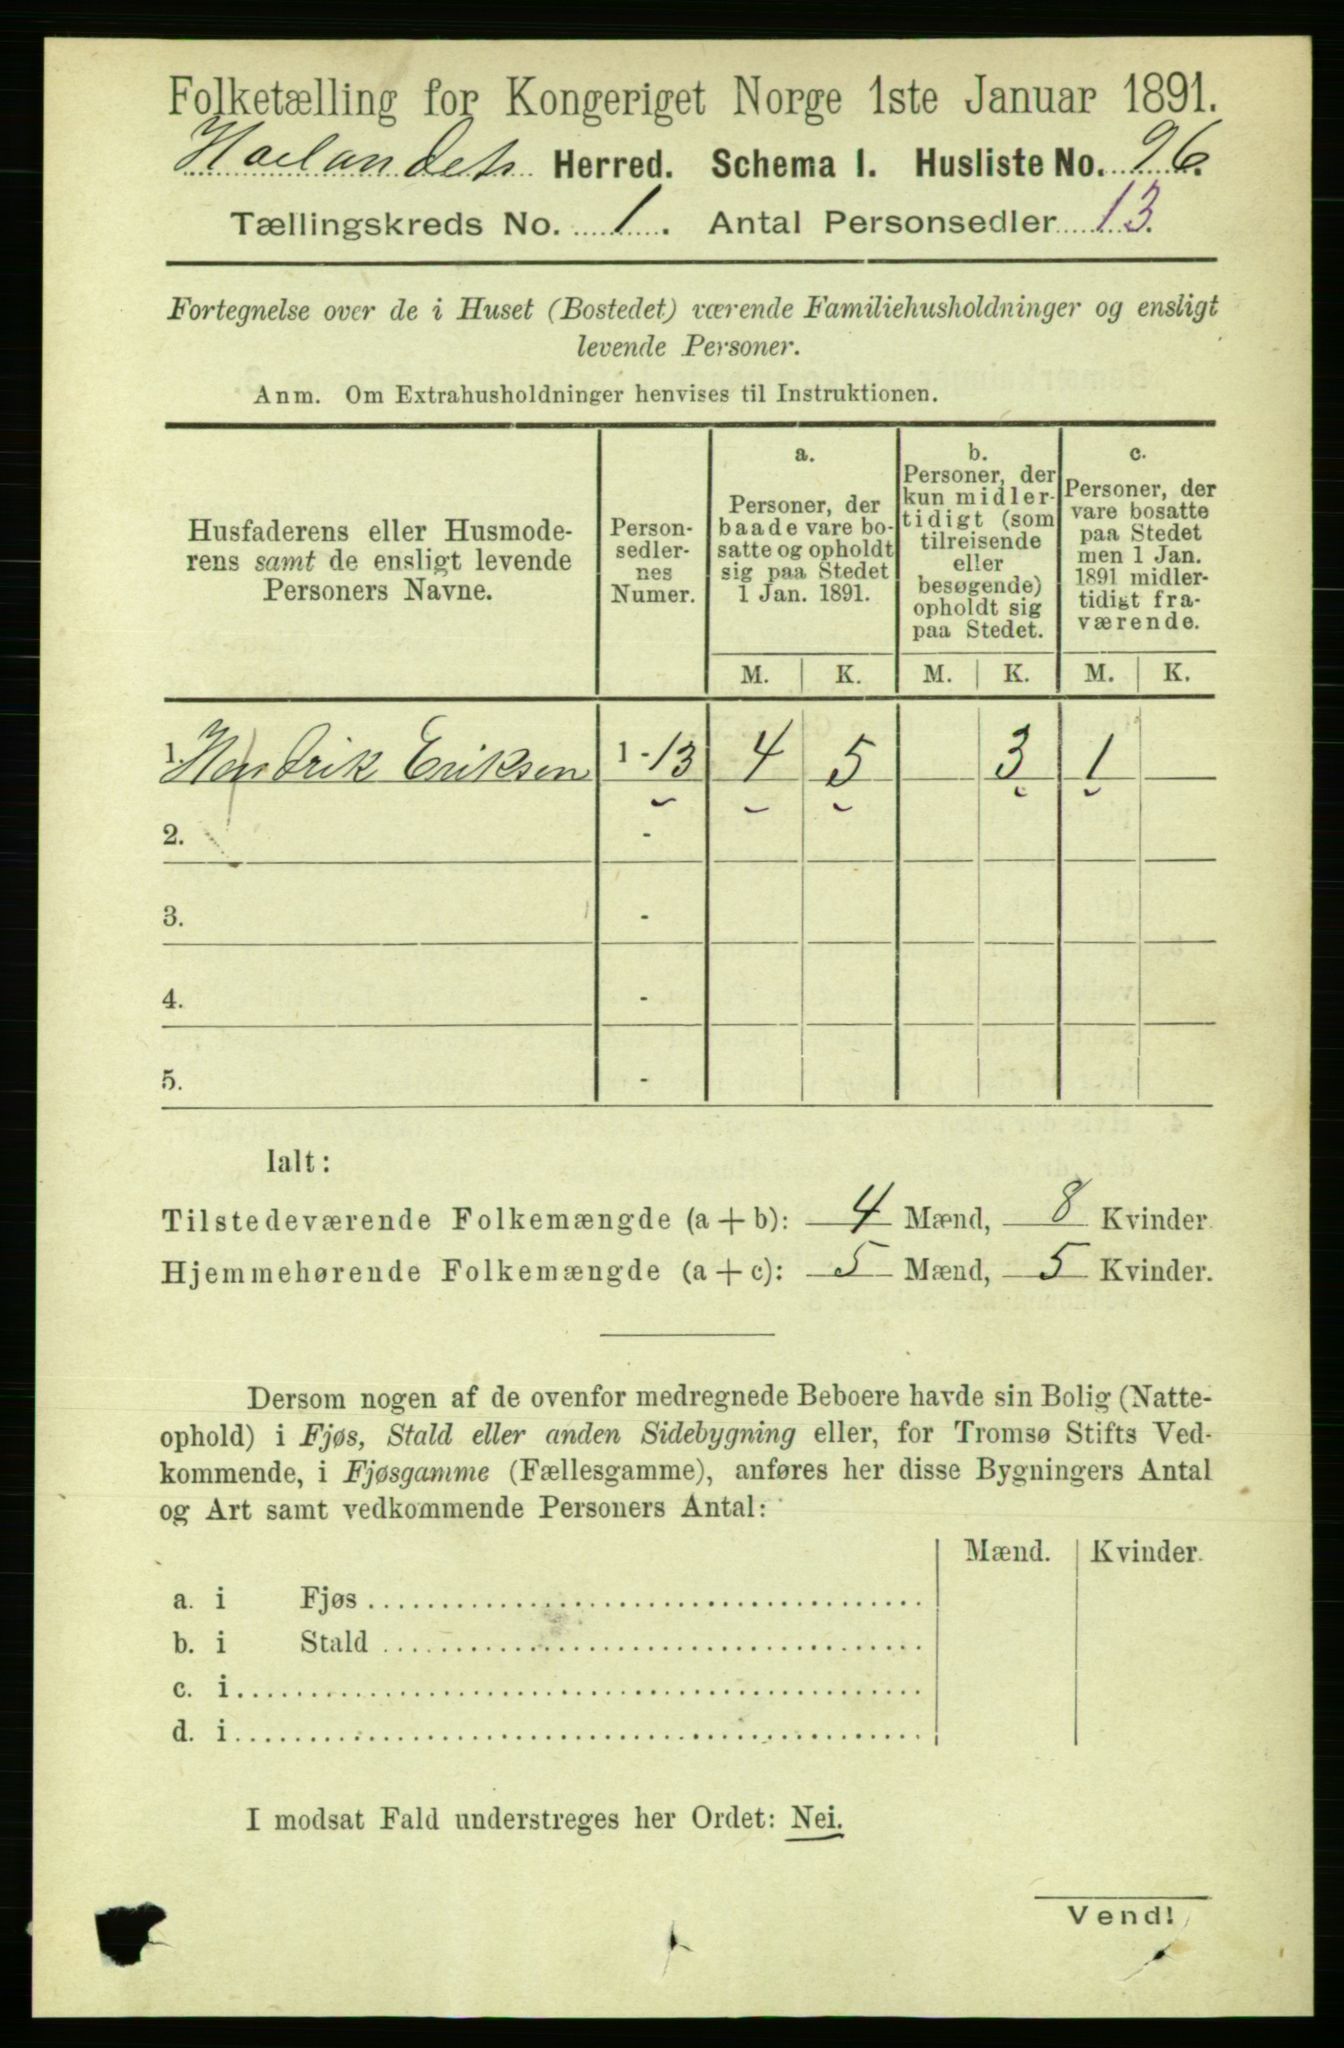 Folketælling for Kongeriget Norge 1ste Januar 1891.
Herred. Schema I. Husliste No. 96.
Tællingskreds No. 1. Antal Personsedler 13.
Fortegnelse over de i Huset (Bostedet) værende Familiehusholdninger og ensligt
levende Personer.
Anm. Om Extrahusholdninger henvises til Instruktionen.
Husfaderens eller Husmode-
rens samt de ensligt levende
Personers Navne.
Person-
sedler-
nes
Numer.
a.
Personer, der
baade vare bo-
satte og opholdt
sig paa Stedet
1 Jan. 1891.
b.
Personer, der
kun midler-
tidigt (som
tilreisende
eller
besøgende)
opholdt sig
paa Stedet.
c.
Personer, der
vare bosatte
paa Stedet
men 1 Jan.
1891 midler-
tidigt fra-
værende.
M. K. M. K. M. K.
1. Hendrik Eriksen 1 - 13 4 5 3 1
2. -
3. -
4. -
5. -
Ialt:
Tilstedeværende Folkemængde (a + b): 4 Mænd, 8 Kvinder.
Hjemmehørende Folkemængde (a + c): 5 Mænd, 5 Kvinder.
Dersom nogen af de ovenfor medregnede Beboere havde sin Bolig (Natte-
ophold) i Fjøs, Stald eller anden Sidebygning eller, for Tromsø Stifts Ved-
kommende, i Fjøsgamme (Fællesgamme), anføres her disse Bygningers Antal
og Art samt vedkommende Personers Antal:
Mænd. Kvinder.
a. i Fjøs
b. i Stald
c. i
d. i
I modsat Fald understreges her Ordet: Nei.
Vend!